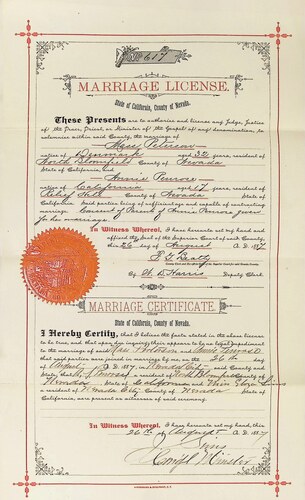 No 617
MARRIAGE LICENSE.
State of California, County of Nevada.
These Presents are to authorize and license any Judge, Justice
of the Peace, Priest, or Minister of the Gospel of any denomination, to
solemnize within said County, the marriage of
Peterson
native of Denmark aged 32 years, resident of
North Bloomfield County of Nevada
State of California, and
Annie Penrose
native of California aged 17 years, resident of
Relief Hill County of Nevada State of
California. Said parties being of sufficient age and capable of contracting
marriage. Consent of Parent of Annie Penrose given
to his marriage.
In Witness Whereof, I have hereunto set my hand and
affixed the Seal of the Superior Court of said County,
this 26 day of August A. D. 1887
Clerk
By W. D. Harris Deputy Clerk.
MARRIAGE CERTIFICATE.
State of California, County of Nevada.
I Hereby Certify, that I believe the facts stated in the above license
to be true, and that upon due inquiry there appears to be no legal impediment
to the marriage of said and Annie Penrose
that said parties were joined in marriage by me on the 26th day of
August 1887, in Nevada City said County and
State; that a resident of County of
Nevada State of California and
a resident of Nevada City County of Nevada State of
California, are present as witnesses of said ceremony.
In Witness Whereof, I have hereunto set my hand this
26th of August A. D. 1887